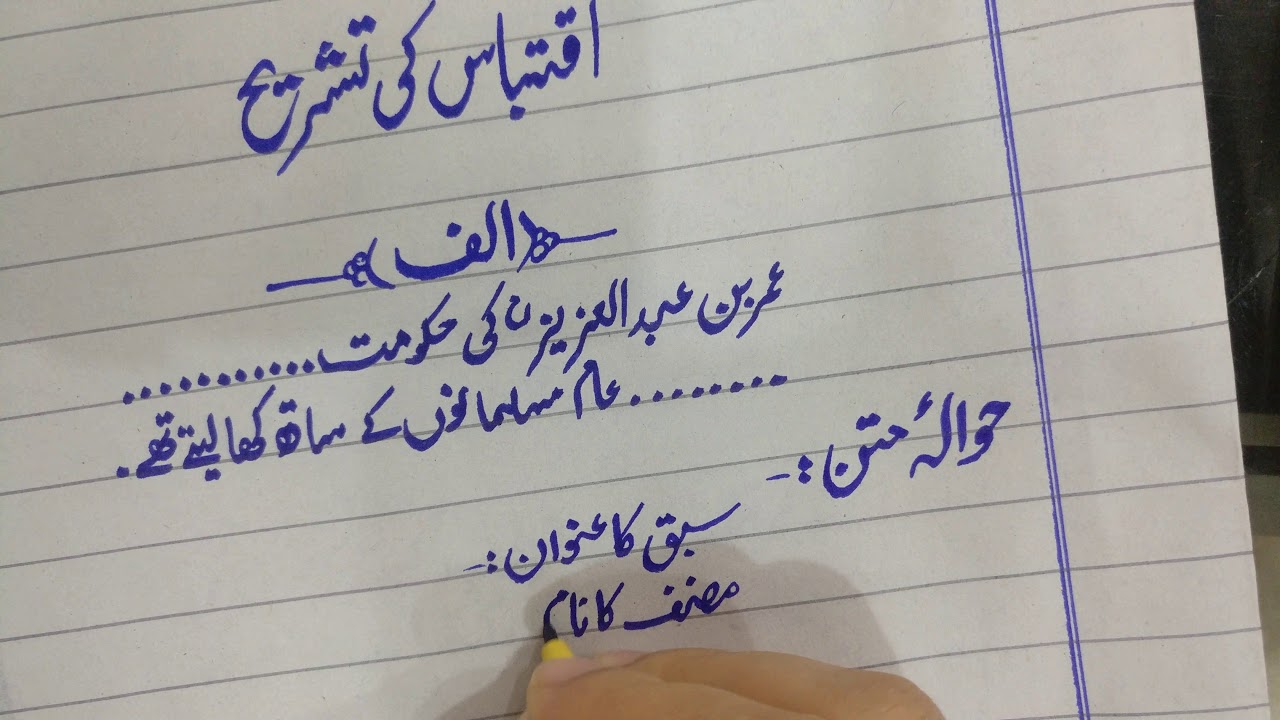 اقتباس کی تشریح
(الف)
عمر بن عبدالعزیزؒ کی حکومت...........
........عام مسلمانوں کے ساتھ کھا لیتے تھے.
حوالۂ متن:-
سبق کا عنوان:-
مصنف کا نام